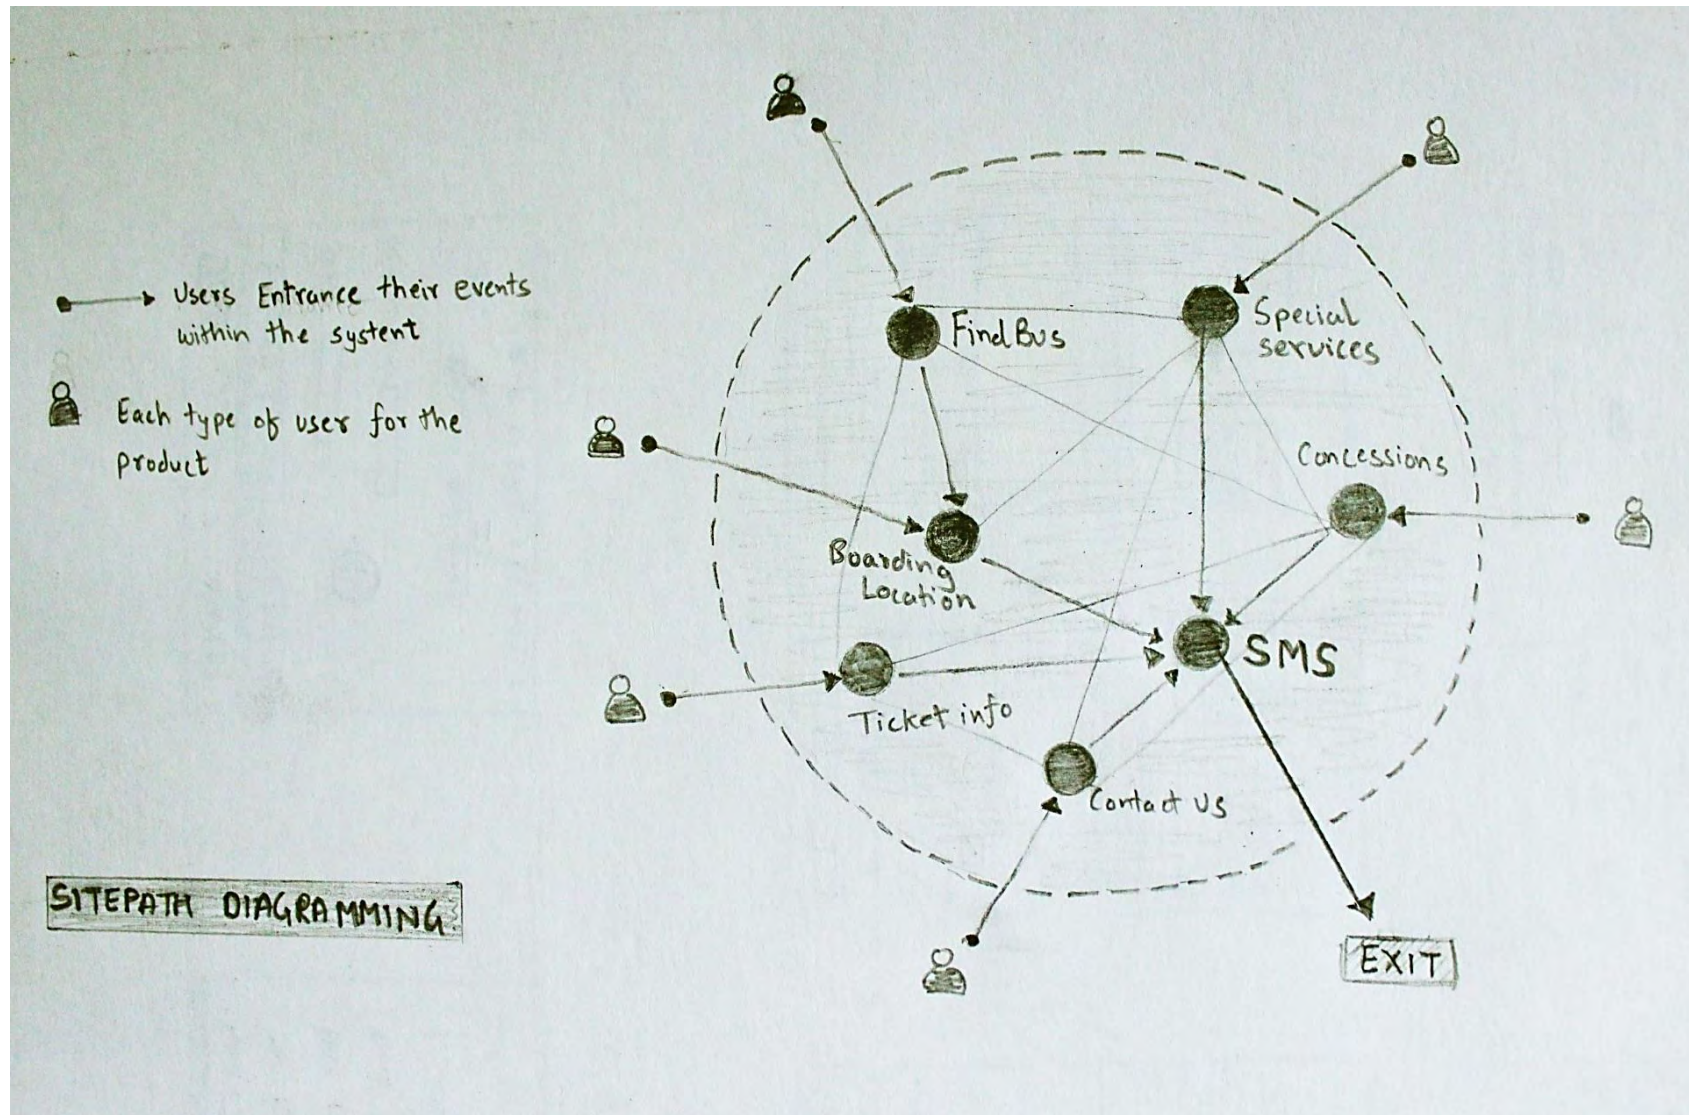 Users Entrance their events
within the systent
Each type of user for the
product
SITEPATH DIAGRAMMING
Find Bus
Special
services
Concessions
Boarding
Location
SMS
Ticket info
Contact Us
EXIT